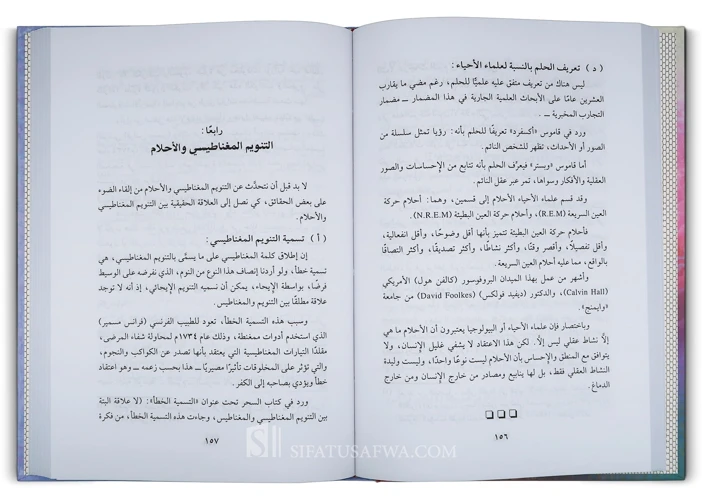 ( د ) تعريف الحلم بالنسبة لعلماء الأحياء :
ليس هناك من تعريف متفق عليه علميًّا للحلم، رغم مضي ما يقارب
العشرين عامًا على الأبحاث العلمية الجارية في هذا المضمار ــ مضمار
التجارب المخبرية ــ .
ورد في قاموس «أكسفرد» تعريفًا للحلم بأنه: رؤيا تمثل سلسلة من
الصور أو الأحداث، تظهر للشخص النائم.
أما قاموس «وبستر» فيعرَّف الحلم بأنه تتابع من الإحساسات والصور
العقلية والأفكار وسواها، تمر عبر عقل النائم.
وقد قسم علماء الأحياء الأحلام إلى قسمين، وهما: أحلام حركة
العين السريعة (R.E.M)، وأحلام حركة العين البطيئة (N.R.E.M).
فأحلام حركة العين البطيئة تتميز بأنها أقل وضوحًا، وأقل انفعالية،
وأقل تفصيلًا، وأقصر وقتًا، وأكثر نشاطًا، وأكثر تصديقًا، وأكثر التصاقًا
بالواقع، مما عليه أحلام العين السريعة.
وأشهر من عمل بهذا الميدان البروفوسور (كالفن هول) الأمريكي
(Calvin Hall)، والدكتور (ديفيد فولكس) (David Foolkes) من جامعة
«وايمنج».
وباختصار فإن علماء الأحياء أو البيولوجيا يعتبرون أن الأحلام ما هي
إلَّا نشاط عقلي ليس إلَّا. لكن هذا الاعتقاد لا يشفي غليل الإنسان، ولا
يتوافق مع المنطق والإحساس بأن الأحلام ليست نوعًا واحدًا، وليست وليدة
النشاط العقلي فقط، بل لها ينابيع ومصادر من خارج الإنسان ومن خارج
الدماغ.
١٥٦
رابعًا :
التنويم المغناطيسي والأحلام
لا بد قبل أن نتحدَّث عن التنويم المغناطيسي والأحلام من إلقاء الضوء
على بعض الحقائق، كي نصل إلى العلاقة الحقيقية بين التنويم المغناطيسي
والأحلام.
( أ ) تسمية التنويم المغناطيسي :
إن إطلاق كلمة المغناطيسي على ما يسمَّى بالتنويم المغناطيسي، هي
تسمية خطأ، ولو أردنا إنصاف هذا النوع من النوم، الذي نفرضه على الوسيط
فرضًا، بواسطة الإيحاء، يمكن أن نسميه التنويم الإيحائي، إذ أنه لا توجد
علاقة مطلقًا بين التنويم والمغناطيس.
وسبب هذه التسمية الخطأ، تعود للطبيب الفرنسي (فرانس مسمير)
الذي استخدم أدوات ممغنطة، وذلك عام ١٧٣٤م لمحاولة شفاء المرضى،
مقلدًا التيارات المغناطيسية التي يعتقد بأنها تصدر عن الكواكب والنجوم،
والتي تؤثر على المخلوقات تأثيرًا مصيريًّا ــ هذا بحسب زعمه ــ وهو اعتقاد
خطأ ويؤدي بصاحبه إلى الكفر.
ورد في كتاب السحر تحت عنوان «التسمية الخطأ»: (لا علاقة البتة
بين التنويم المغناطيسي والمغناطيس، وجاءت هذه التسمية الخطأ، من فكرة
١٥٧
SIFATUSAFWA.COM